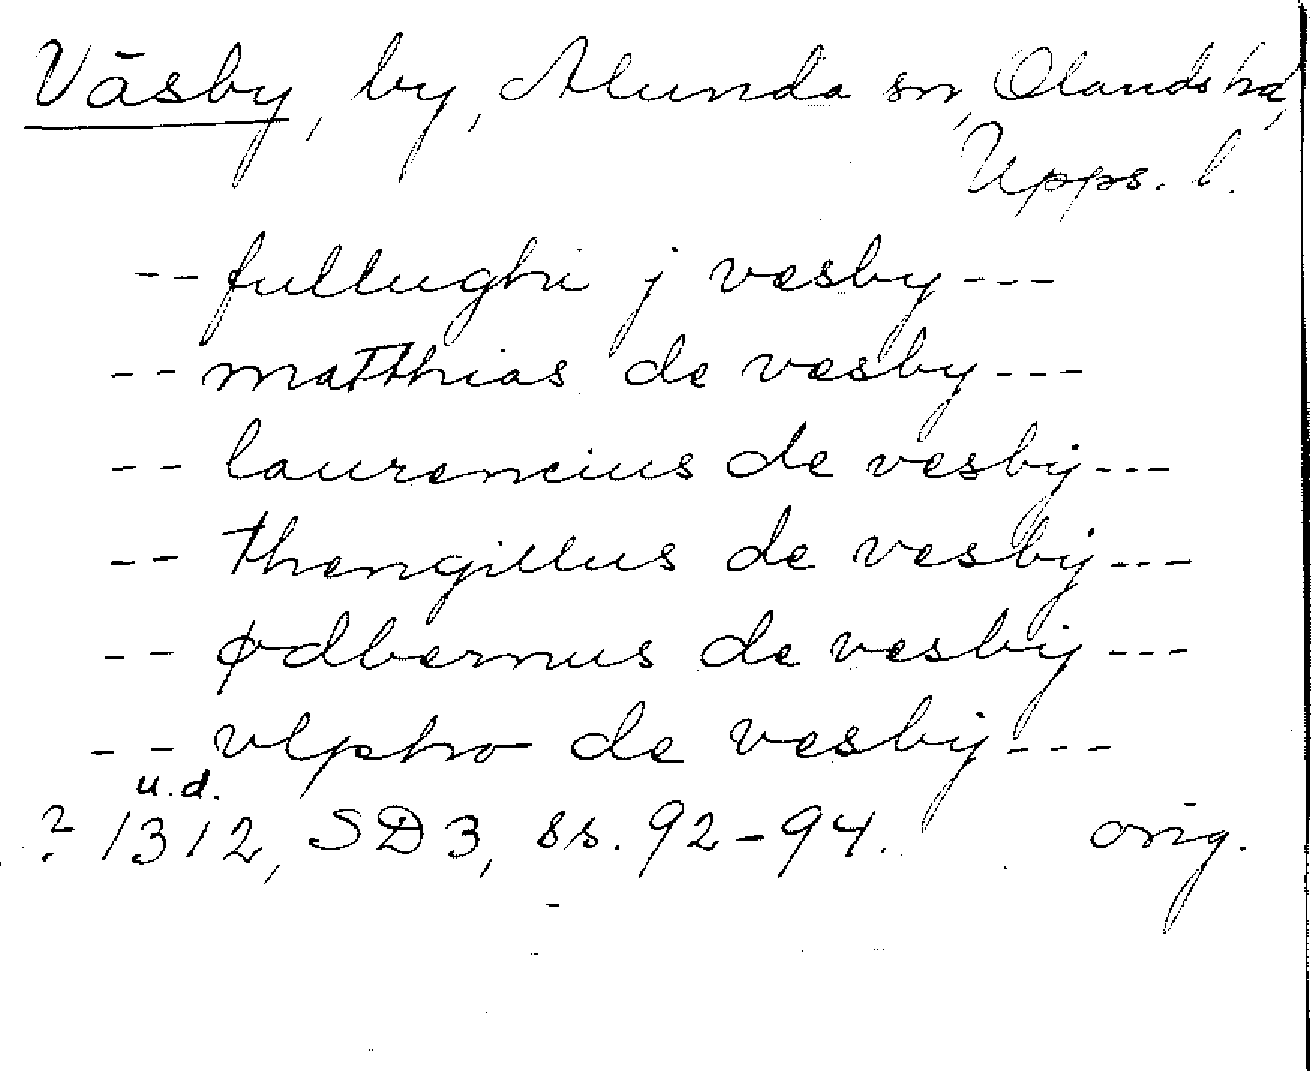 Väsby, by, Alunda sn, Olands hd,
Upps. l.
-- fullughi j væsby ---
-- matthias de væsby ---
-- laurencius de væsbij ---
-- thengillus de væsbij ---
-- ødbernus de væsbij ---
-- vlpho de væsbij ---
u.d.
? 1312, SD 3, ss. 92-94. orig.